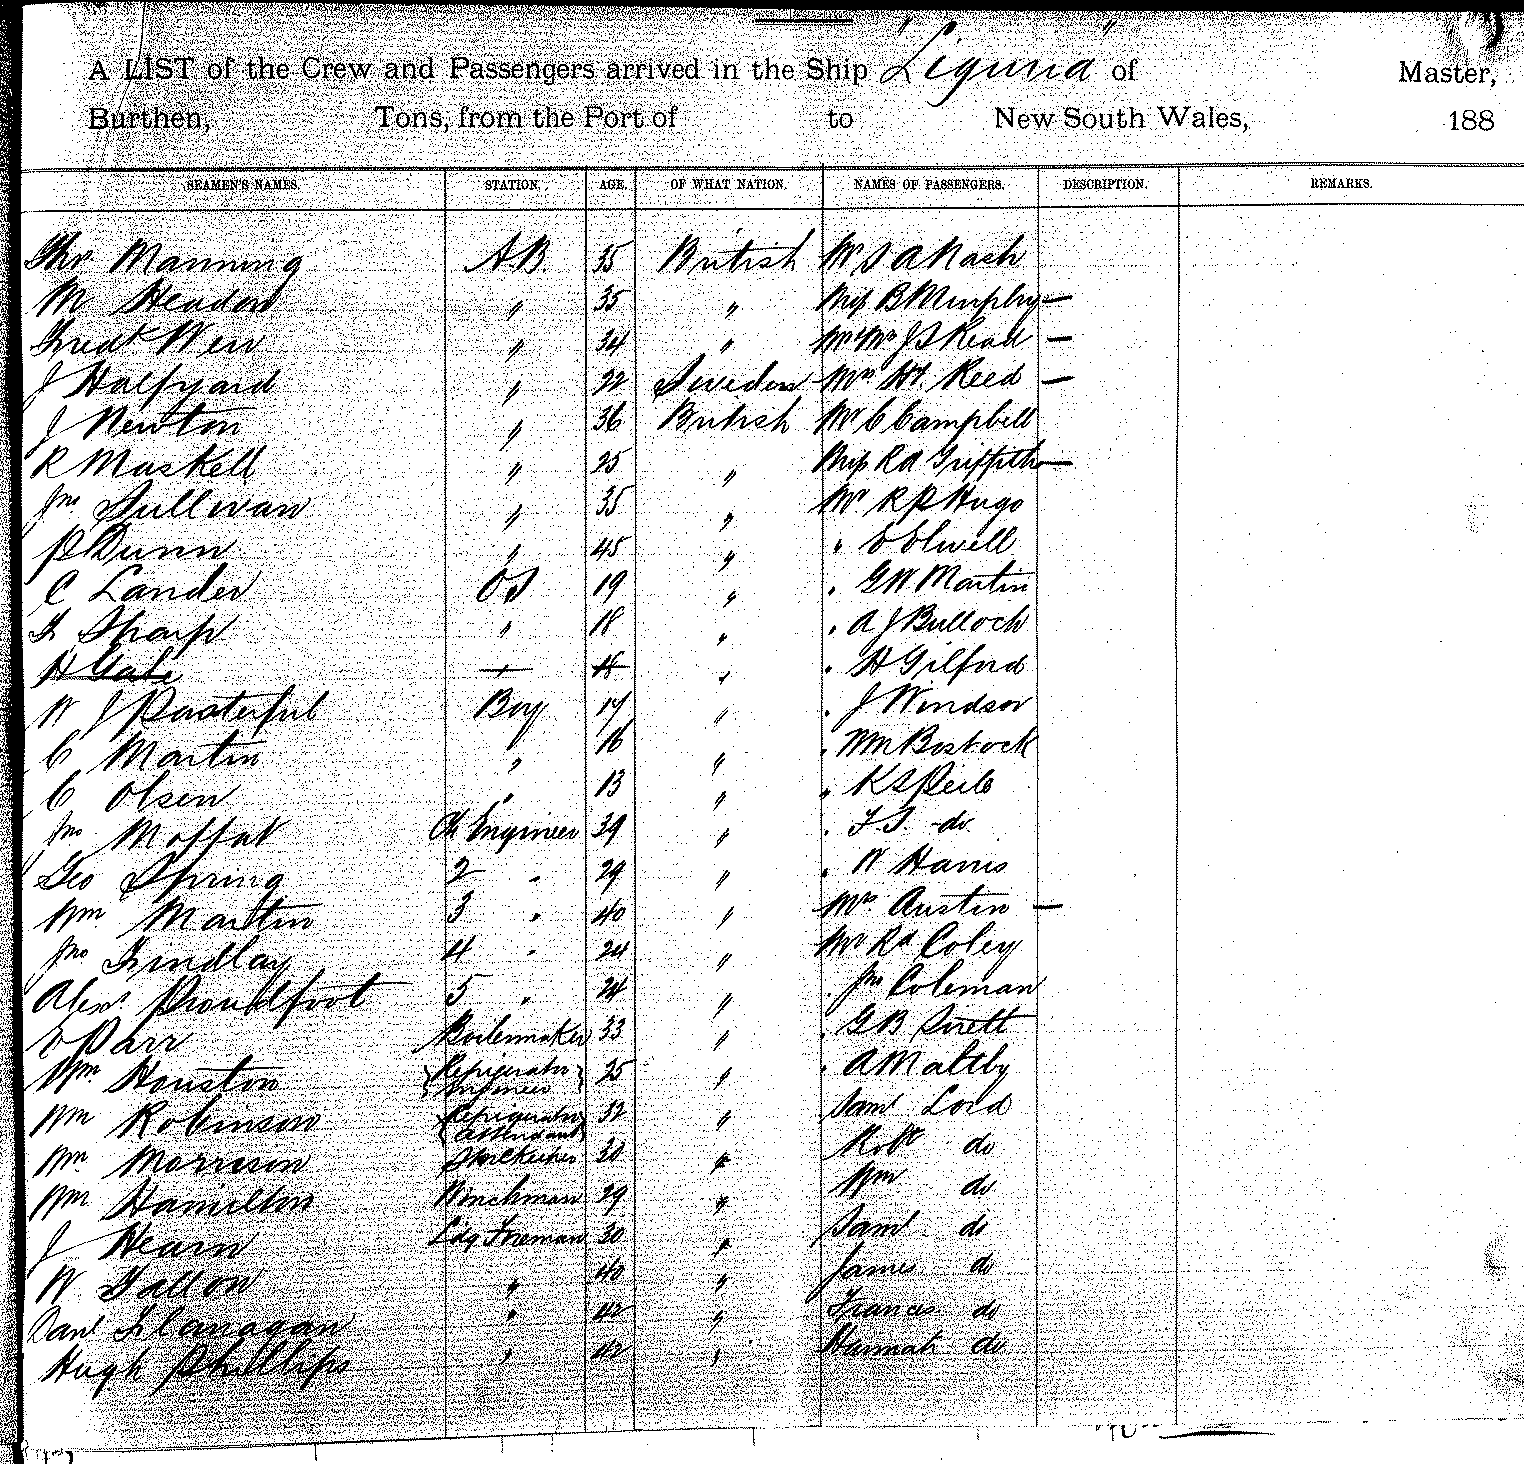 A LIST of the Crew and Passengers arrived in the Ship Liguria of Master,
Burthen, Tons, from the Port of to New South Wales, 188
SEAMEN'S NAMES. STATION. AGE. OF WHAT NATION. NAMES OF PASSENGERS. DESCRIPTION. REMARKS.
Thos Manning A.B. 35 British Mr S A Nash
M Headon " 35 " Miss B Murphy —
Fredk Weir " 34 " Mr Mrs J S Read —
J Halfyard " 22 Sweden Mrs Hy Reed —
J Newton " 36 British Mr C Campbell
R Maskell " 25 " Miss R A Griffiths —
Jno Sullivan " 35 " Mr R P Hugo
P Dunn " 45 " " E Elwell
C Lander OS 19 " " G W Martin
F Sharp " 18 " " A J Bulloch
H Gale " 18 " " H Gilford
W J Pasterful Boy 17 " " J Windsor
C Martin " 16 " " Wm Bostock
C Olsen " 13 " " K S Peile
Jno Moffat Ch Engineer 39 " " F.T. do
Geo Spring 2 " 29 " " W Harris
Wm Martin 3 " 40 " Mrs Austin —
Jno Findlay 4 " 24 " Mr Rd Coley
Alexr Proudfoot 5 " 24 " " Jno Coleman
E Parr Boilermaker 33 " " G B Sirett
Wm Houston Refrigerator Engineer 25 " " A Maltby
Wm Robinson Refrigerator attendant 32 " Saml Lord
Wm Morrison Storekeeper 30 " Robt do
Wm Hamilton Winchman 29 " Wm do
J Hearn Ldg Fireman 30 " Saml do
W Fallon " 40 " James do
Danl Flanagan " 42 " Frances do
Hugh Phillips " 42 " Hannah do